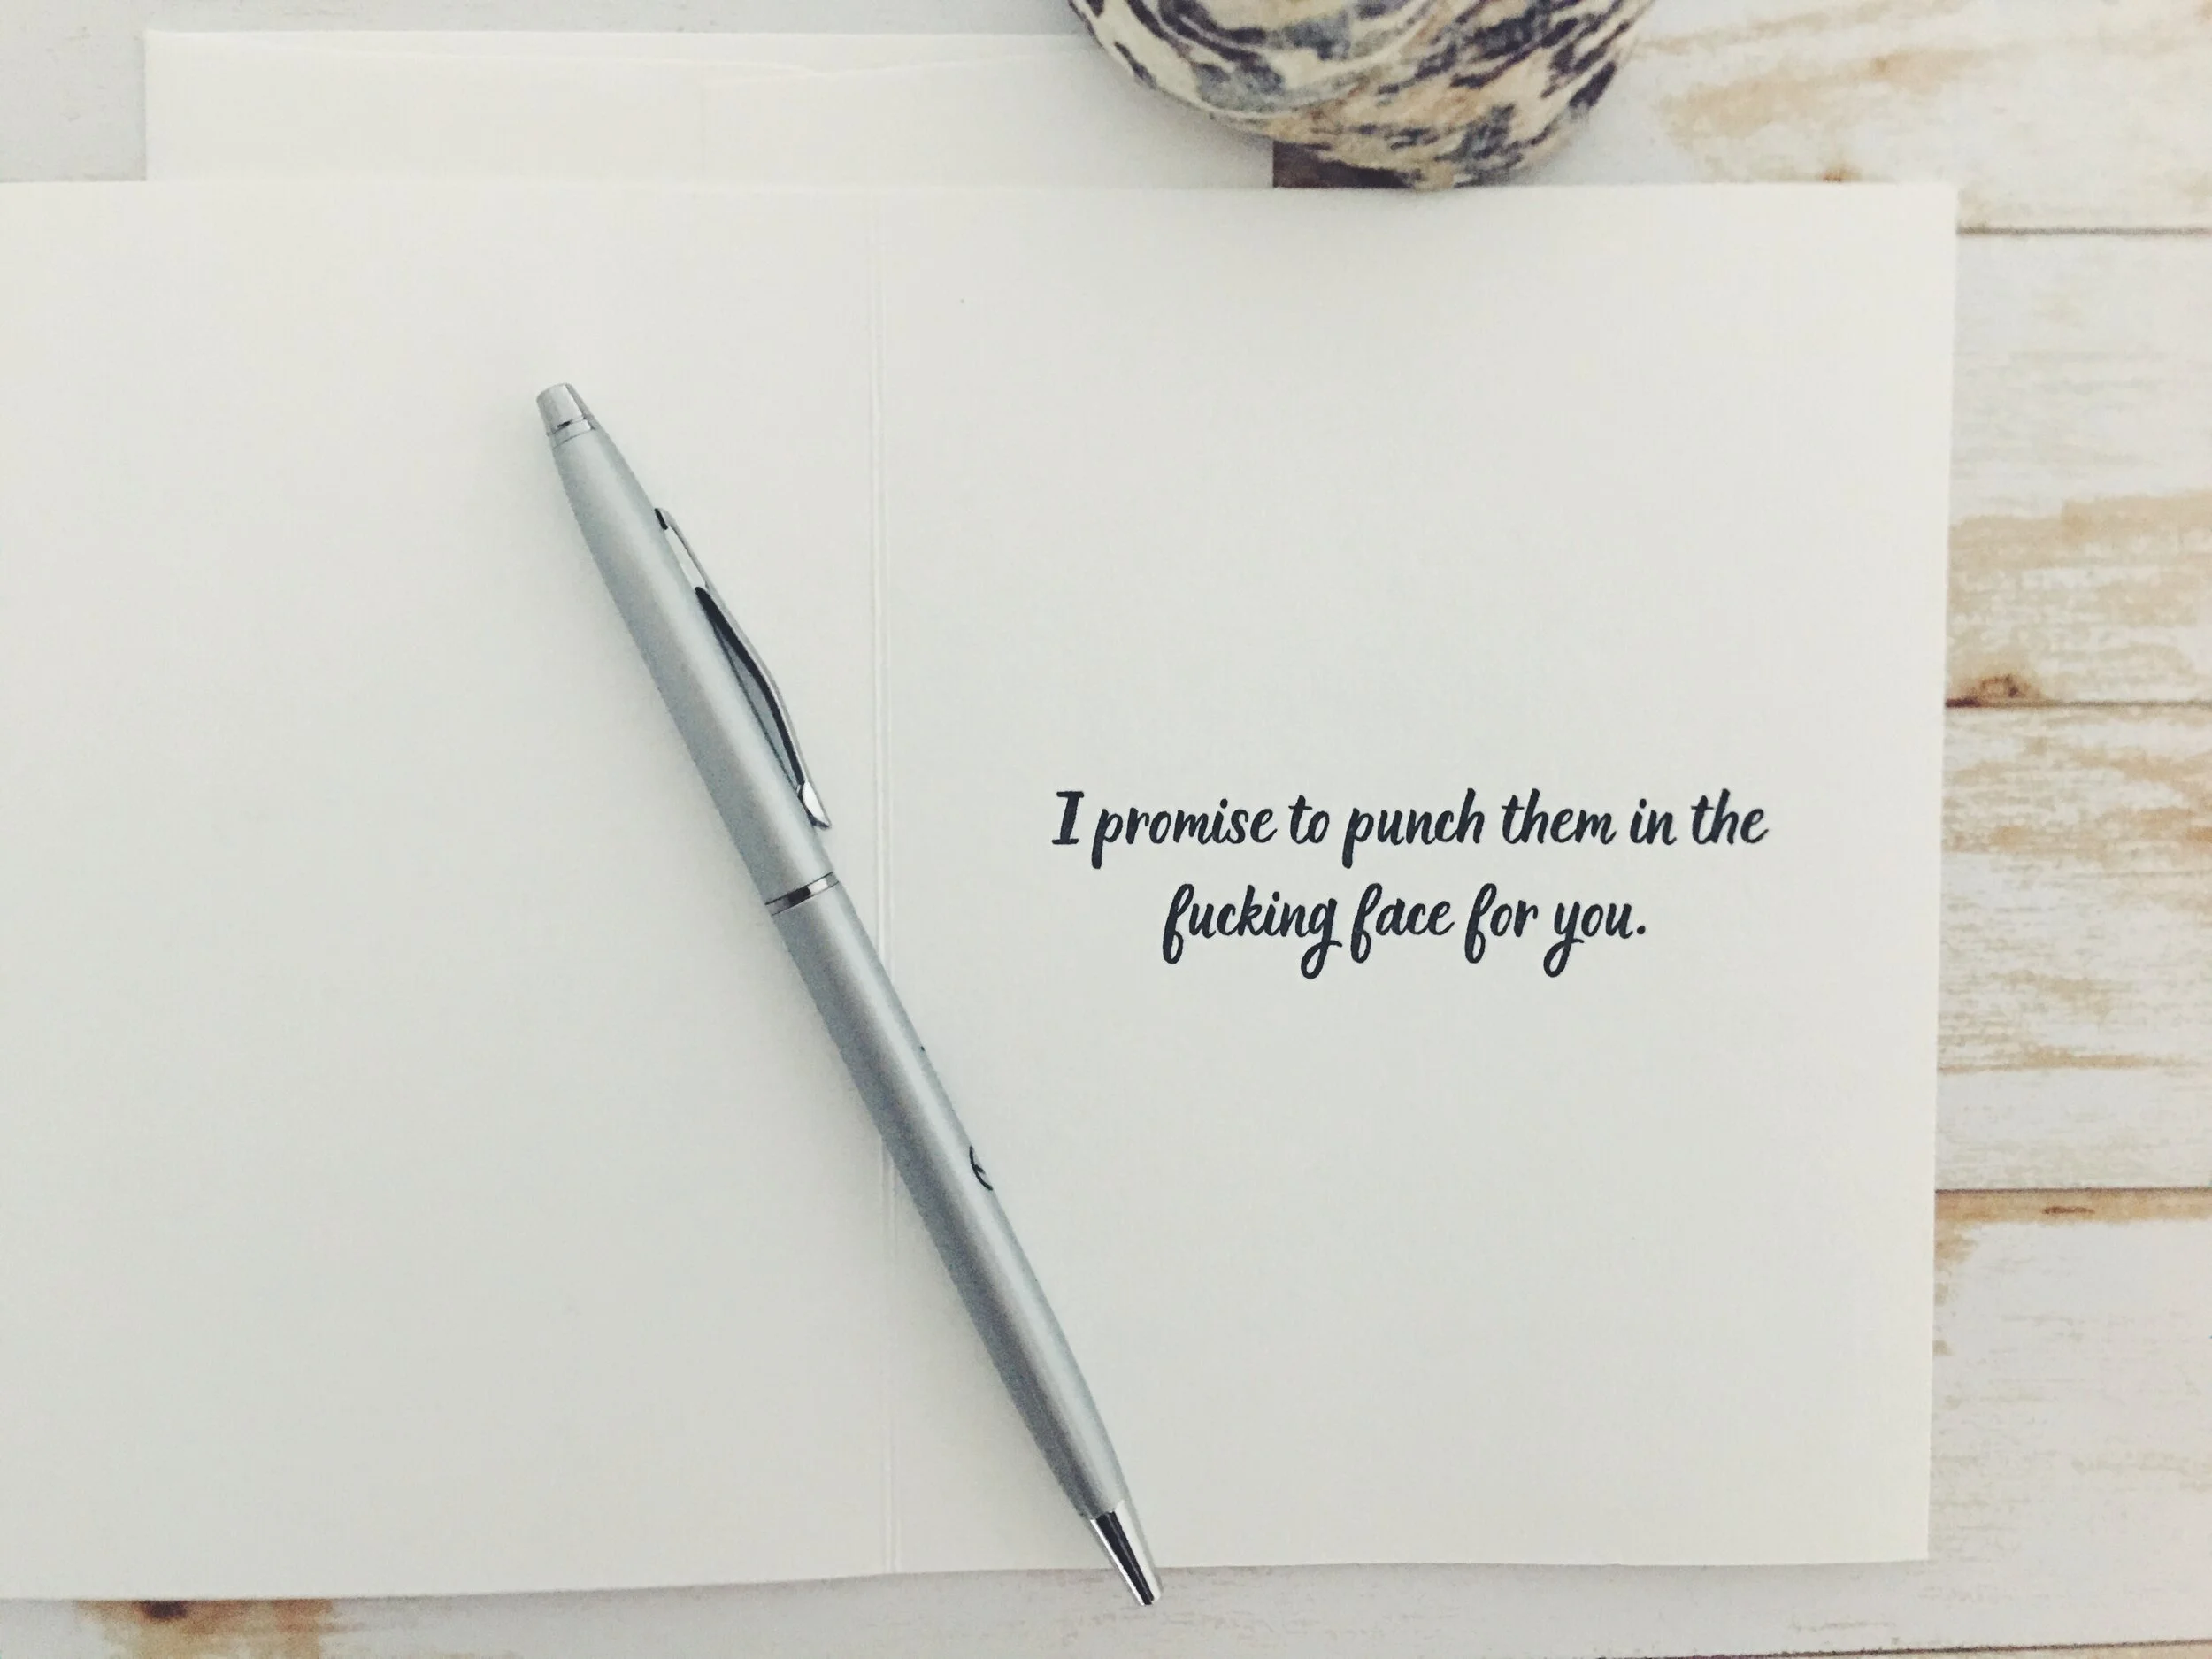 I promise to punch them in the
fucking face for you.